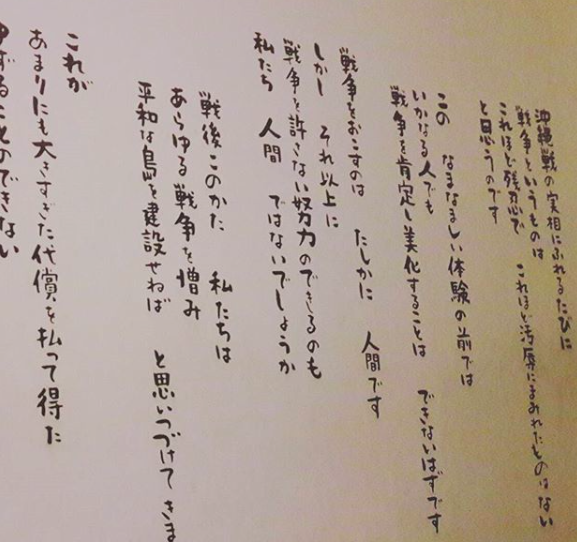 沖縄戦の実相にふれるたびに
戦争というものは
これほど残忍で これほど汚辱にまみれたものはない
と思うのです
この なまなましい体験の前では
いかなる人でも
戦争を肯定し美化することは できないはずです
戦争をおこすのは たしかに 人間です
しかし それ以上に
戦争を許さない努力のできるのも
私たち 人間 ではないでしょうか
戦後このかた 私たちは
あらゆる戦争を憎み
平和な島を建設せねば と思いつづけてきま
これが
あまりにも大きすぎた代償を払って得た
ゆずることのできない